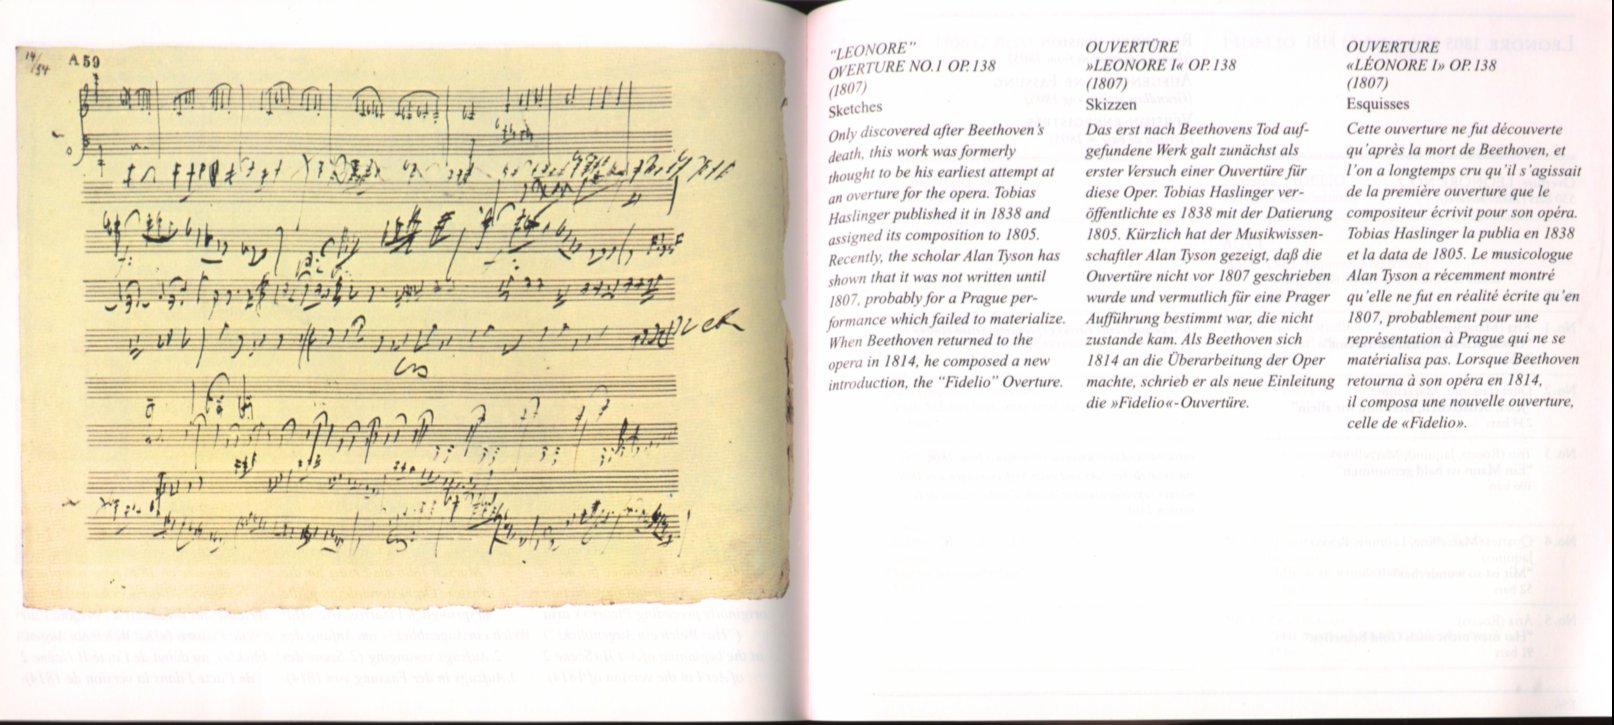 14/
54
A 59
"LEONORE"
OVERTURE NO.1 OP.138
(1807)
Sketches
Only discovered after Beethoven's
death, this work was formerly
thought to be his earliest attempt at
an overture for the opera. Tobias
Haslinger published it in 1838 and
assigned its composition to 1805.
Recently, the scholar Alan Tyson has
shown that it was not written until
1807, probably for a Prague per-
formance which failed to materialize.
When Beethoven returned to the
opera in 1814, he composed a new
introduction, the "Fidelio" Overture.
OUVERTÜRE
»LEONORE I« OP.138
(1807)
Skizzen
Das erst nach Beethovens Tod auf-
gefundene Werk galt zunächst als
erster Versuch einer Ouvertüre für
diese Oper. Tobias Haslinger ver-
öffentlichte es 1838 mit der Datierung
1805. Kürzlich hat der Musikwissen-
schaftler Alan Tyson gezeigt, daß die
Ouvertüre nicht vor 1807 geschrieben
wurde und vermutlich für eine Prager
Aufführung bestimmt war, die nicht
zustande kam. Als Beethoven sich
1814 an die Überarbeitung der Oper
machte, schrieb er als neue Einleitung
die »Fidelio«-Ouvertüre.
OUVERTURE
«LÉONORE I» OP.138
(1807)
Esquisses
Cette ouverture ne fut découverte
qu'après la mort de Beethoven, et
l'on a longtemps cru qu'il s'agissait
de la première ouverture que le
compositeur écrivit pour son opéra.
Tobias Haslinger la publia en 1838
et la data de 1805. Le musicologue
Alan Tyson a récemment montré
qu'elle ne fut en réalité écrite qu'en
1807, probablement pour une
représentation à Prague qui ne se
matérialisa pas. Lorsque Beethoven
retourna à son opéra en 1814,
il composa une nouvelle ouverture,
celle de «Fidelio».